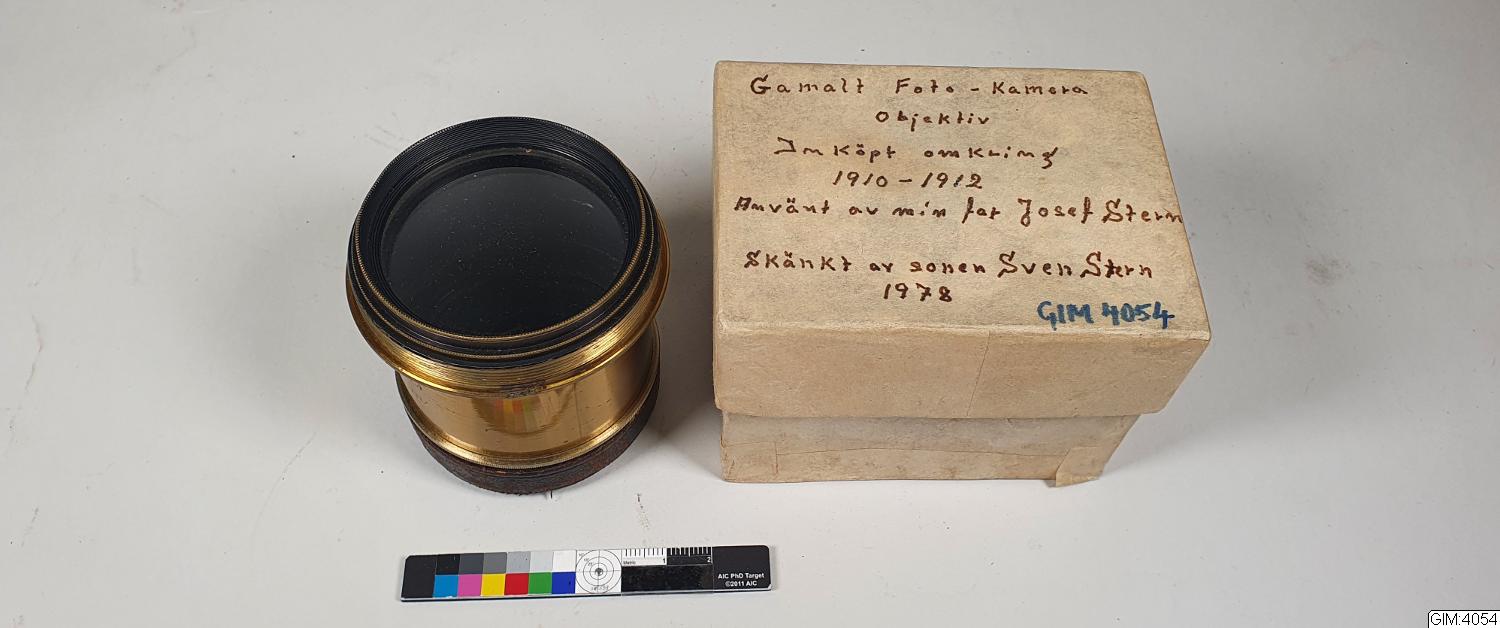 Gamalt Foto - Kamera
Objektiv
Inköpt omkring
1910 - 1912
Använt av min far Josef Stern
Skänkt av sonen Sven Stern
1978
GIM 4054
Metric
1
2
AIC PhD Target
©2011 AIC
GIM:4054